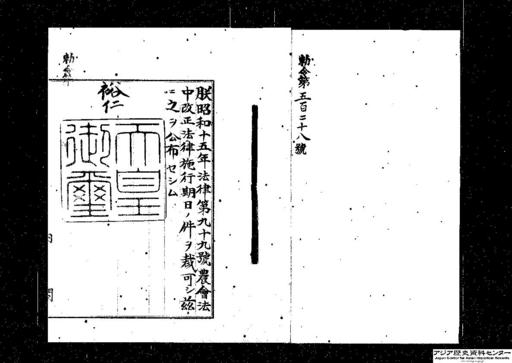 勅令第五百二十八號
朕昭和十五年法律第九十九號農會法
中改正法律施行期日ノ件ヲ裁可シ茲
ニ之ヲ公布セシム
裕仁
天皇
御璽
勅令
内 閣
アジア歴史資料センター
Japan Center for Asian Historical Records